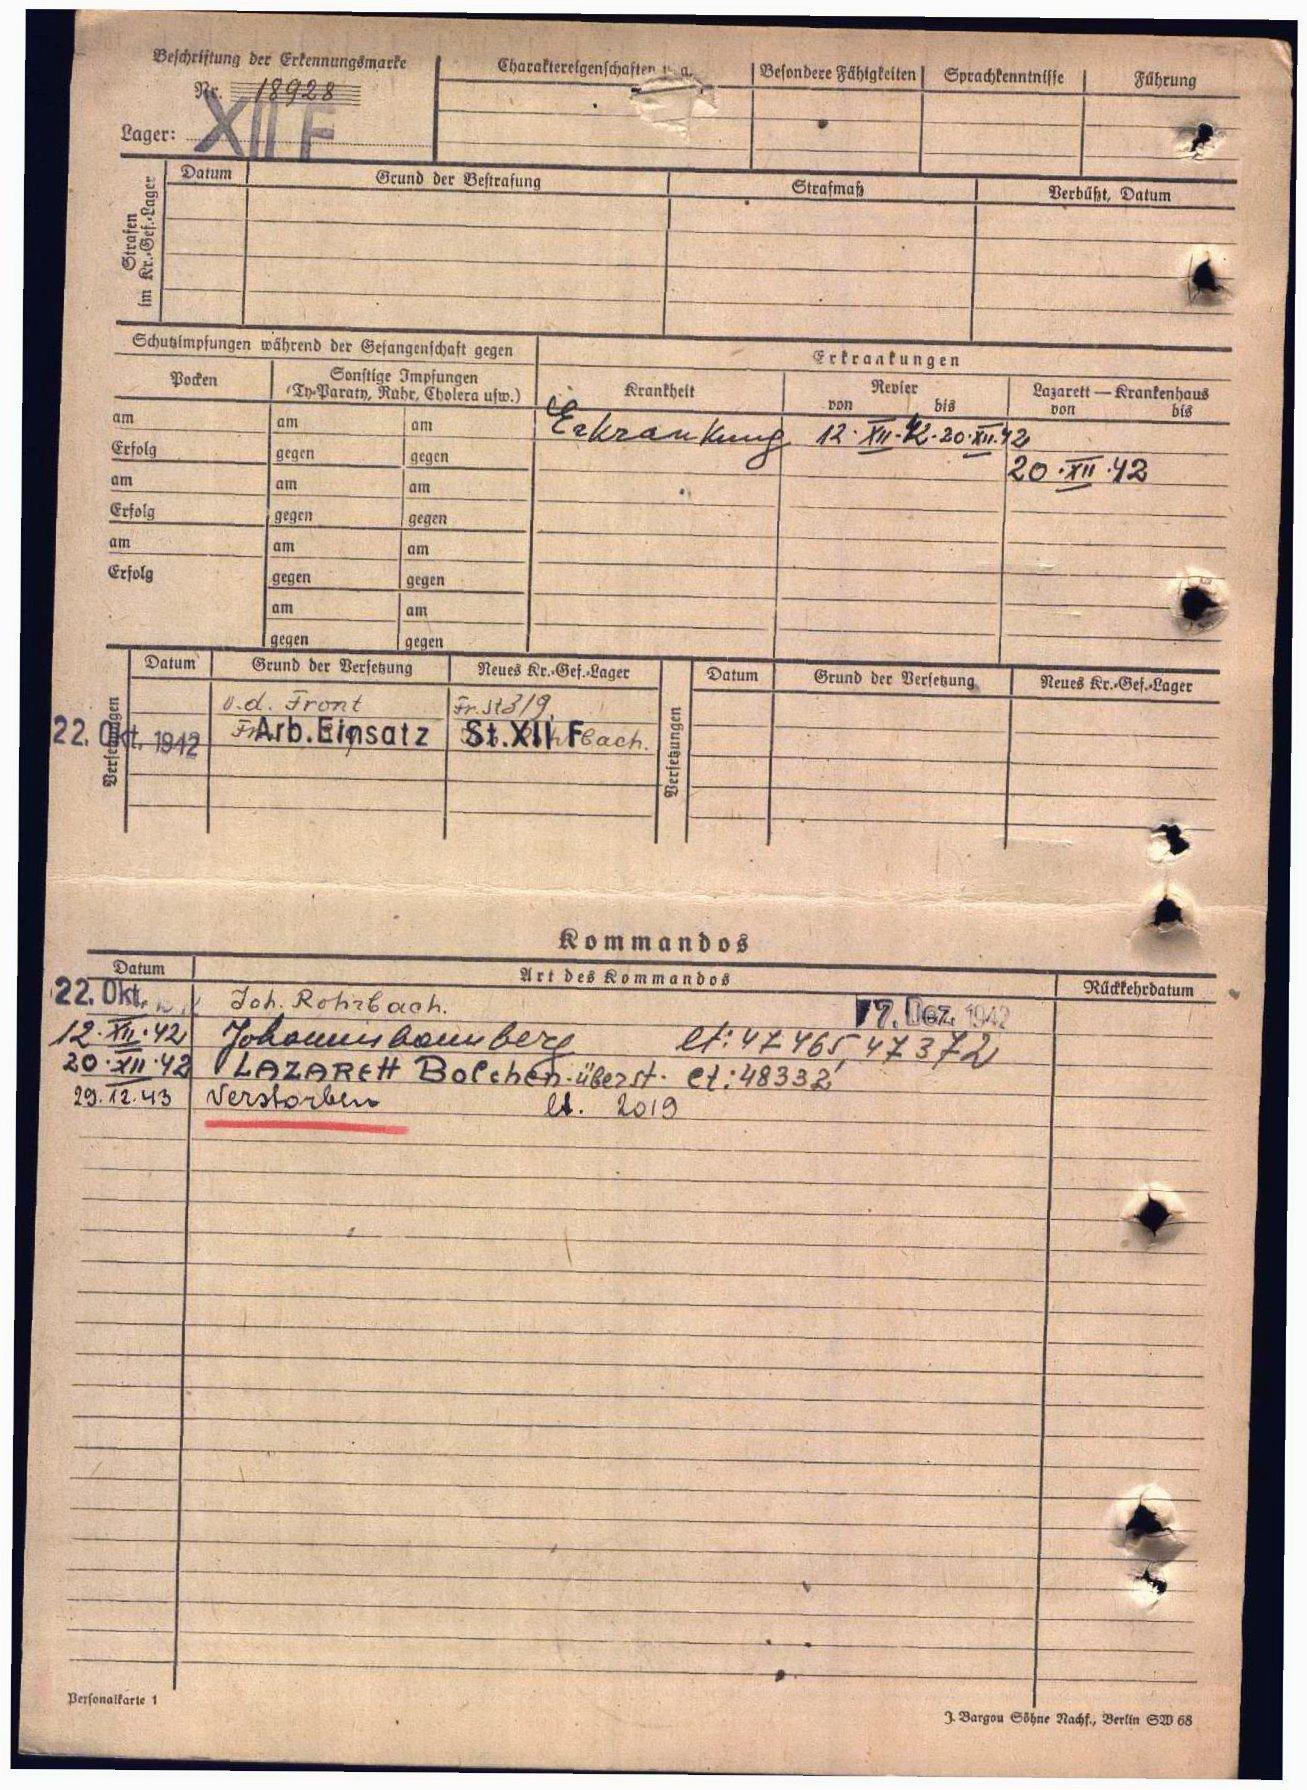 Beschriftung der Erkennungsmarke
Nr. 18928
Lager: XII F
Charaktereigenschaften u. a.
Besondere Fähigkeiten
Sprachkenntnisse
Führung
Strafen im Kr.-Gef.-Lager
Datum
Grund der Bestrafung
Strafmaß
Verbüßt, Datum
Schutzimpfungen während der Gefangenschaft gegen
Erkrankungen
Pocken
Sonstige Impfungen
(Ty-Paraty, Ruhr, Cholera usw.)
Krankheit
Revier
von bis
Lazarett — Krankenhaus
von bis
am am am
Erkrankung 12.XII.42. 20.XII.42
Erfolg gegen gegen
20.XII.42
am am am
Erfolg gegen gegen
am am am
Erfolg gegen gegen
am am
gegen gegen
Versetzungen
Datum
Grund der Versetzung
Neues Kr.-Gef.-Lager
Versetzungen
Datum
Grund der Versetzung
Neues Kr.-Gef.-Lager
v.d. Front Fr.St 319
22. Okt. 1942 Arb.Einsatz St.XII F
Kommandos
Datum Art des Kommandos Rückkehrdatum
22. Okt. Joh. Rohrbach. 17. Dez. 1942
12.XII.42 Johannisbannberg lt: 47465, 47372
20.XII.42 LAZARETT Bolchen überst. lt: 48332
29.12.43 Verstorben lt. 2019
Personalkarte 1
J. Bargou Söhne Nachf., Berlin SW 68